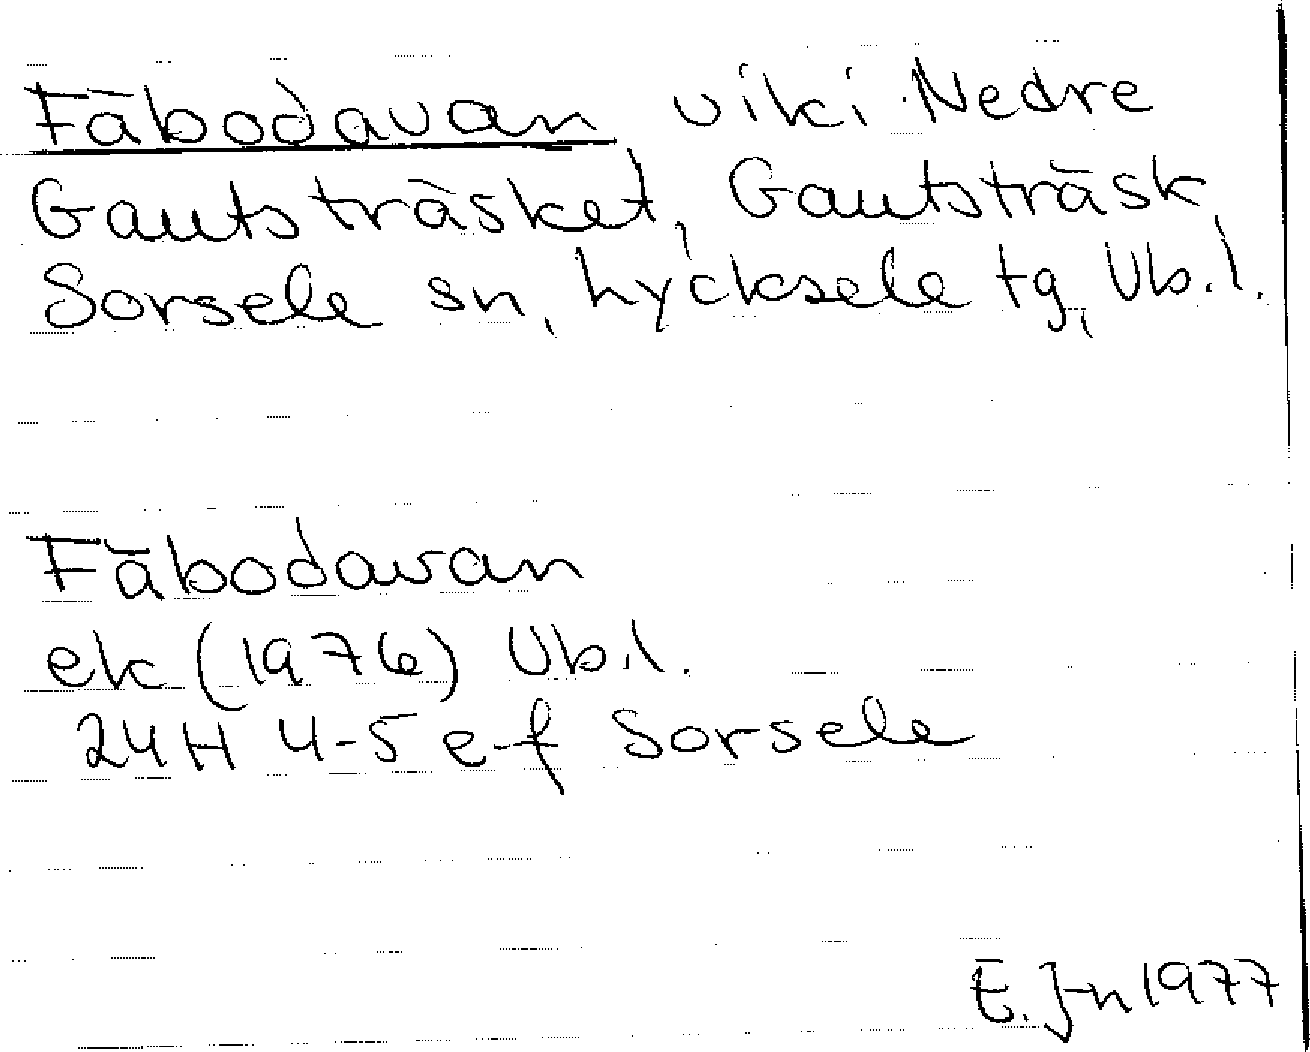 Fäbodavan vik i Nedre
Gautsträsket, Gautsträsk,
Sorsele sn, Lycksele tg, Vb.l.
Fäbodavan
ek (1976) Vb.l.
24H 4-5 e-f Sorsele
E. J-n 1977